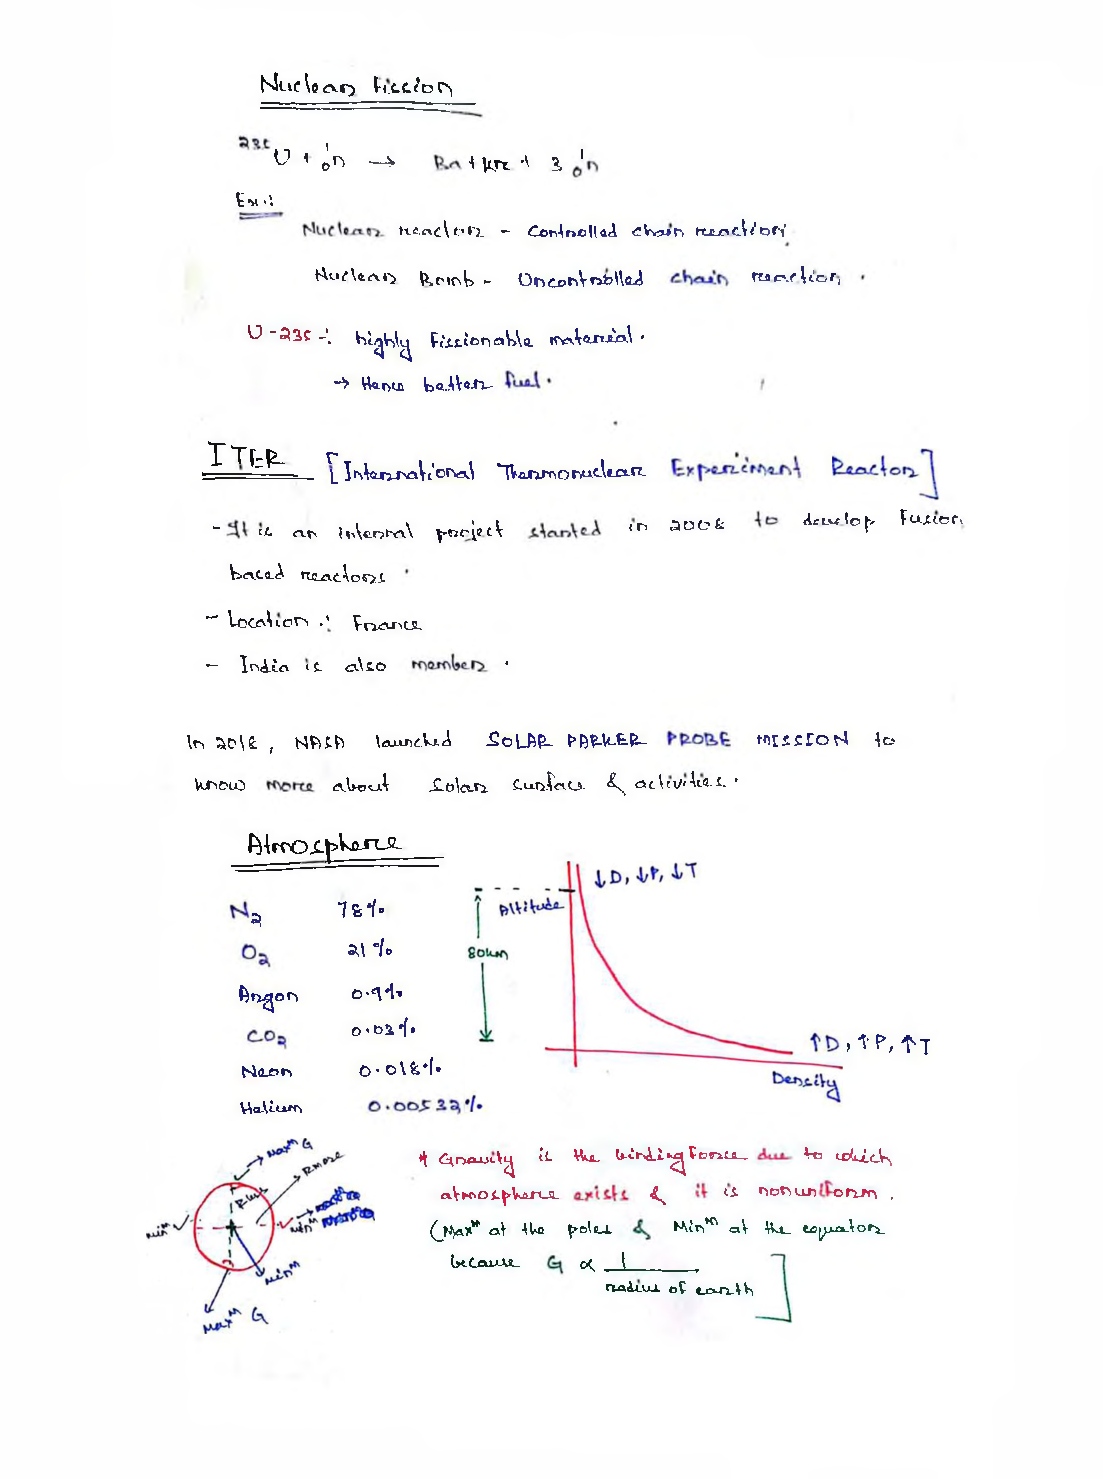 Nuclear Fission
²³⁵U + ¹₀n → Ba + Kr + 3 ¹₀n
Ex:-
Nuclear reactor - Controlled chain reaction
Nuclear Bomb - Uncontrolled chain reaction.
U-235 -: highly fissionable material.
→ Hence better fuel.
ITER [International Thermonuclear Experiment Reactor]
- It is an internal project started in 2008 to develop Fusion
based reactors.
- Location : France
- India is also member.
In 2018, NASA launched SOLAR PARKER PROBE MISSION to
know more about Solar Surface & activities.
Atmosphere
N₂ 78%
O₂ 21%
Argon 0.9%
CO₂ 0.03%
Neon 0.018%
Helium 0.00532%
↓D, ↓P, ↓T
Altitude
80km
↑D, ↑P, ↑T
Density
Maxᵐ G
R more
R less
minᵐ
minᵐ
minᵐ
Maxᵐ G
* Gravity is the binding Force due to which
atmosphere exists & it is nonuniform.
(Maxᵐ at the poles & Minᵐ at the equator
because G ∝ 1
radius of earth]